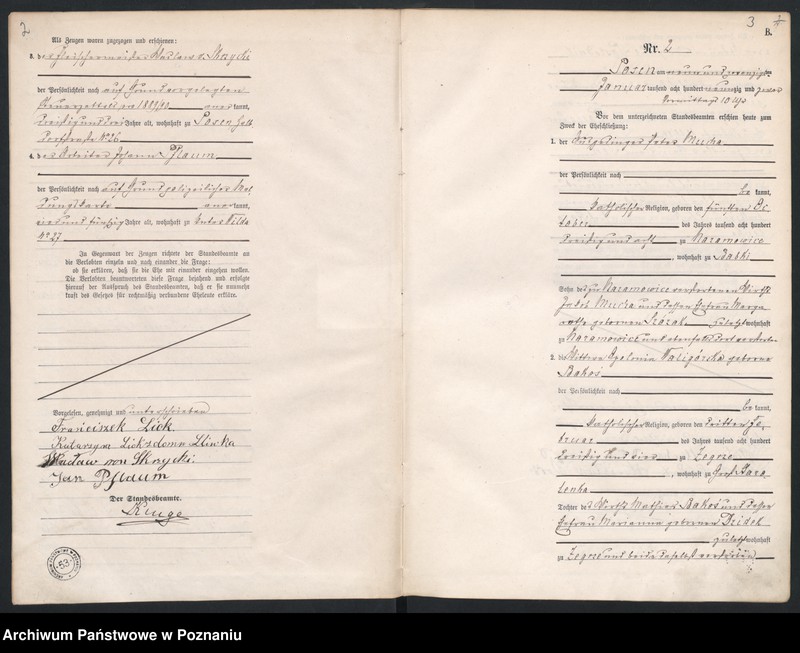 2
Als Zeugen waren zugezogen und erschienen:
3. der Fleischermeister Waclaw v. Skrzycki
der Persönlichkeit nach auf Grund vorgelegten
Steuerzettels pro 1889/90 anerkannt,
dreißig und drei Jahre alt, wohnhaft zu Posen Halb-
dorfstraße No 26
4. der Arbeiter Johann Pflaum
der Persönlichkeit nach auf Grund polizeilicher Mel-
dungskarte anerkannt,
vier und fünfzig Jahre alt, wohnhaft zu Unter Wilda
No 27
In Gegenwart der Zeugen richtete der Standesbeamte an
die Verlobten einzeln und nach einander die Frage:
ob sie erklären, daß sie die Ehe mit einander eingehen wollen.
Die Verlobten beantworteten diese Frage bejahend und erfolgte
hierauf der Ausspruch des Standesbeamten, daß er sie nunmehr
kraft des Gesetzes für rechtmäßig verbundene Eheleute erkläre.
Vorgelesen, genehmigt und unterschrieben
Franciszek Lick
Katarzyna Lick zdomu Slinka
Wacław von Skrzycki
Jan Pflaum
Der Standesbeamte.
Kruge
53
3
B.
Nr. 2
Posen am neun und zwanzigsten
Januar tausend acht hundert neunzig und
Vormittags 10 Uhr
Vor dem unterzeichneten Standesbeamten erschienen heute zum
Zweck der Eheschließung:
1. der Ausgedinger Peter Mucha
der Persönlichkeit nach
be kannt,
katholischer Religion, geboren den fünften Ok-
tober des Jahres tausend acht hundert
dreißig und acht zu Naramowice
, wohnhaft zu Babki
Sohn des zu Naramowice verstorbenen Wirths
Jakob Mucha und dessen Ehefrau Marga-
rethe geborenen Szózak zuletzt wohnhaft
zu Naramowice und ebenfalls dort verstorben
2. die Wittwe Apolonia Waligórska geborene
Bakoś
der Persönlichkeit nach
be kannt,
katholischer Religion, geboren den dritten Fe-
bruar des Jahres tausend acht hundert
dreißig und vier zu Zegrze
, wohnhaft zu Groß Sta-
rolenka
Tochter des Wirths Mathias Bakoś und dessen
Ehefrau Marianna geborenen Dzidek
zuletzt wohnhaft
zu Zegrze und beide daselbst verstorben
Archiwum Państwowe w Poznaniu